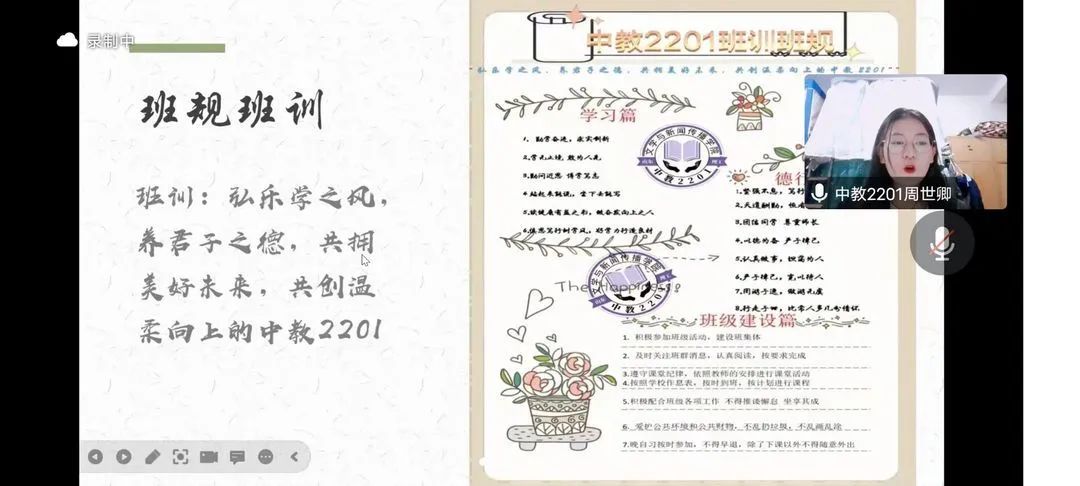 录制中
班规班训
班训：弘乐学之风，
养君子之德，共拥
美好未来，共创温
柔向上的中教2201
中教2201班训班规
弘乐学之风，养君子之德，共拥美好未来，共创温柔向上的中教2201
学习篇
1，勤学奋进，求实创新
2,学无止境 敢为人先
3,勤问近思 博学笃志
4,站起来能说，坐下去能写
5,读健康有益之书，做奋发向上之人
文学与新闻传播学院
中教2201
德行
1.坚强不息，笃行
2.天道酬勤，
3.团结同学 尊重师长
4.以德为备 严于律己
5.认真做事，
6.严于律己，宽以待人
文学与新闻传播学院
中教2201
The Happiness
班级建设篇
1. 积极参加班级活动，建设班集体
2. 及时关注班群消息，认真阅读，按要求完成
3.遵守课堂纪律，依照教师的安排进行课堂活动
4.按照学校作息表，按时到班，按计划进行课程
5.积极配合班级各项工作 不得推诿懈怠 坐享其成
6. 爱护公共环境和公共财物，不乱扔垃圾，不乱画乱涂
7.晚自习按时参加，不得早退，除了下课以外不得随意外出
中教2201周世卿